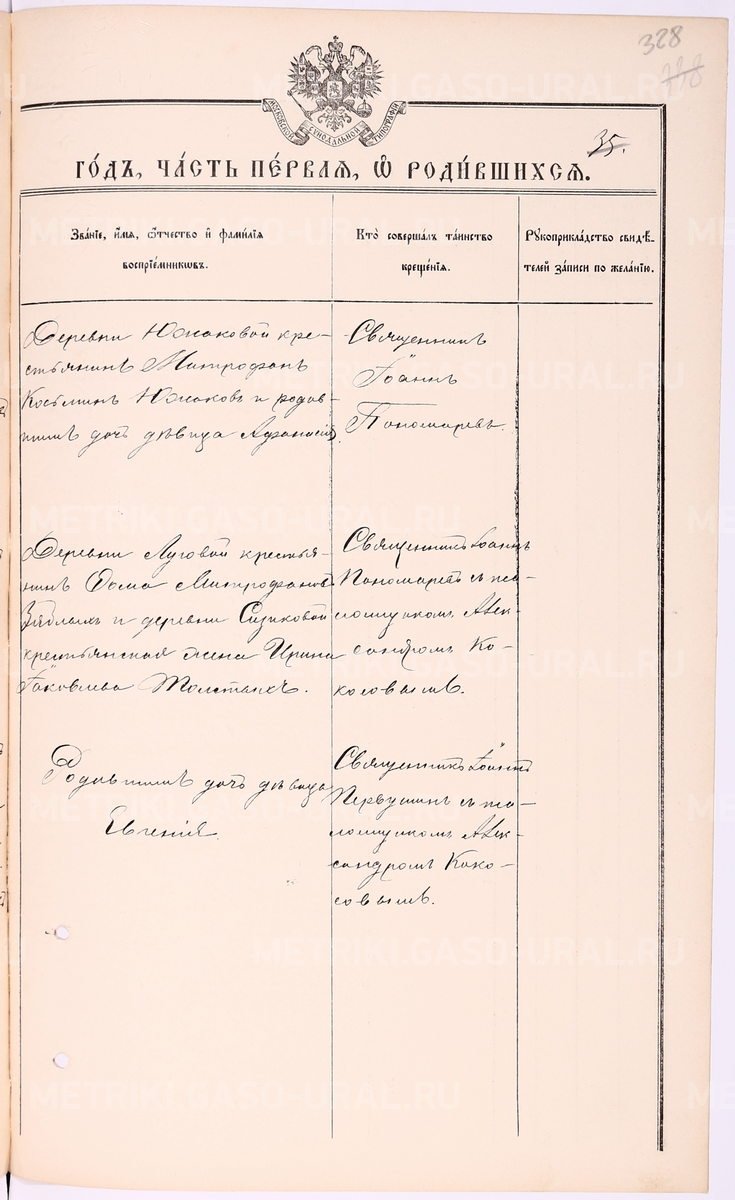 328
778
МОСКОВСКОЙ СѴНОДАЛЬНОЙ ТИПОГРАФІИ
35.
ГО́ДЪ, ЧА́СТЬ ПЕ́РВАѦ, Ѡ҆ РОДИ́ВШИХСѦ.
Зва́нїе, и҆́мѧ, ѻ҆́тчество и҆ фами́лїѧ
воспрїе́мникѡвъ.
Кто̀ соверша́лъ та́инство
креще́нїѧ.
Рꙋкоприкла́дство свидѣ́-
телей за́писи по жела́нїю.
Деревни Южаковой кре-
стьянинъ Митрофанъ
Косьминъ Южаковъ и родив-
шихъ дочь дѣвица Афанасія.
Священникъ
Іоаннъ
Пономаревъ.
Деревни Луговой крестья-
нинъ Ѳома Митрофановъ
и деревни Сизиковой
крестьянская жена Ирина
Іаковлева Толстыхъ.
Священникъ Іоаннъ
Пономаревъ съ пса-
ломщикомъ Алек-
сандромъ Ко-
косовымъ.
Родившихъ дочь дѣвица
Евгенія.
Священникъ Іоаннъ
Первушинъ съ пса-
ломщикомъ Алек-
сандромъ Коко-
совымъ.
METRIKI.GASO-URAL.RU